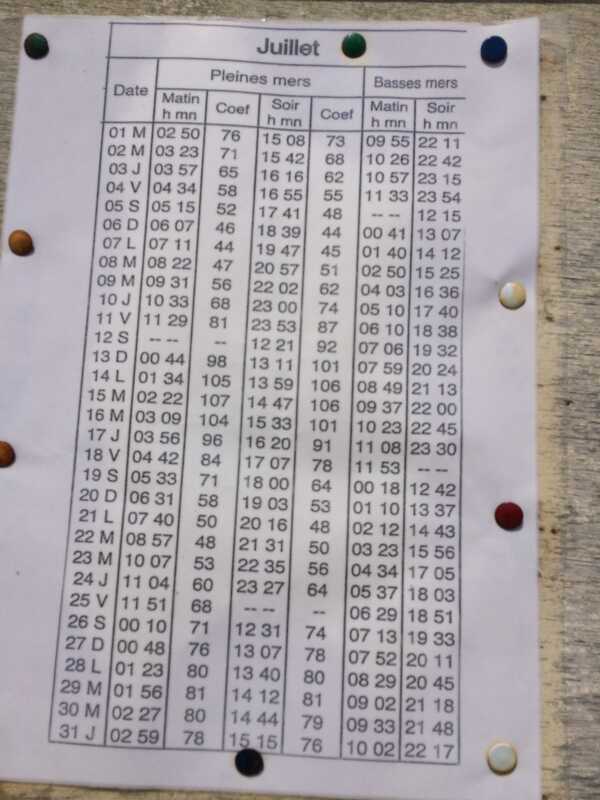 Juillet
Pleines mers Basses mers
Date Matin h mn Coef Soir h mn Coef Matin h mn Soir h mn
01 M 02 50 76 15 08 73 09 55 22 11
02 M 03 23 71 15 42 68 10 26 22 42
03 J 03 57 65 16 16 62 10 57 23 15
04 V 04 34 58 16 55 55 11 33 23 54
05 S 05 15 52 17 41 48 -- -- 12 15
06 D 06 07 46 18 39 44 00 41 13 07
07 L 07 11 44 19 47 45 01 40 14 12
08 M 08 22 47 20 57 51 02 50 15 25
09 M 09 31 56 22 02 62 04 03 16 36
10 J 10 33 68 23 00 74 05 10 17 40
11 V 11 29 81 23 53 87 06 10 18 38
12 S -- -- -- 12 21 92 07 06 19 32
13 D 00 44 98 13 11 101 07 59 20 24
14 L 01 34 105 13 59 106 08 49 21 13
15 M 02 22 107 14 47 106 09 37 22 00
16 M 03 09 104 15 33 101 10 23 22 45
17 J 03 56 96 16 20 91 11 08 23 30
18 V 04 42 84 17 07 78 11 53 -- --
19 S 05 33 71 18 00 64 00 18 12 42
20 D 06 31 58 19 03 53 01 10 13 37
21 L 07 40 50 20 16 48 02 12 14 43
22 M 08 57 48 21 31 50 03 23 15 56
23 M 10 07 53 22 35 56 04 34 17 05
24 J 11 04 60 23 27 64 05 37 18 03
25 V 11 51 68 -- -- -- 06 29 18 51
26 S 00 10 71 12 31 74 07 13 19 33
27 D 00 48 76 13 07 78 07 52 20 11
28 L 01 23 80 13 40 80 08 29 20 45
29 M 01 56 81 14 12 81 09 02 21 18
30 M 02 27 80 14 44 79 09 33 21 48
31 J 02 59 78 15 15 76 10 02 22 17